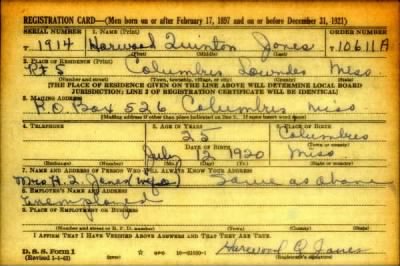 REGISTRATION CARD—(Men born on or after February 17, 1897 and on or before December 31, 1921)
SERIAL NUMBER 1. NAME (Print) ORDER NUMBER
T 1914 Harwood Quinton Jones T 10611A
(First) (Middle) (Last)
2. PLACE OF RESIDENCE (Print)
RFS Columbus Lowndes Miss.
(Number and street) (Town, township, village, or city) (County) (State)
[THE PLACE OF RESIDENCE GIVEN ON THE LINE ABOVE WILL DETERMINE LOCAL BOARD
JURISDICTION; LINE 2 OF REGISTRATION CERTIFICATE WILL BE IDENTICAL]
3. MAILING ADDRESS
P.O. Box 526 Columbus Miss
[Mailing address if other than place indicated on line 2. If same insert word same]
4. TELEPHONE 5. AGE IN YEARS 6. PLACE OF BIRTH
25 Columbus
DATE OF BIRTH (Town or county)
July 12 1920 Miss
(Exchange) (Number) (Mo.) (Day) (Yr.) (State or country)
7. NAME AND ADDRESS OF PERSON WHO WILL ALWAYS KNOW YOUR ADDRESS
Mrs. Jones (wife) Same as above
8. EMPLOYER'S NAME AND ADDRESS
Unemployed
9. PLACE OF EMPLOYMENT OR BUSINESS
(Number and street or R. F. D. number) (Town) (County) (State)
I AFFIRM THAT I HAVE VERIFIED ABOVE ANSWERS AND THAT THEY ARE TRUE.
D. S. S. Form 1
GPO Harwood Q Jones
(Registrant's signature)